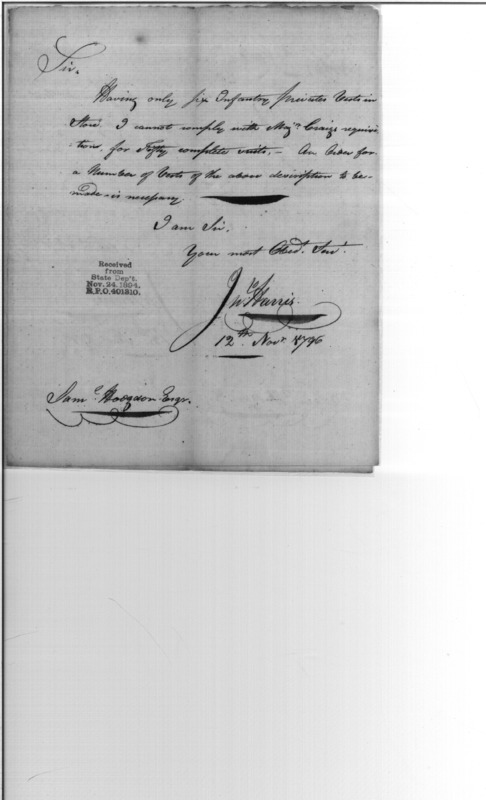 Sir,
Having only six Infantry privates Vests in
Store I cannot comply with Majr. Craigs requisi-
:tion, for Fifty complete suits, — An Order for
a Number of Vests of the above description to be
made is necessary
I am Sir.
Your most Obed. Servt.
Jno. Harris
12th. Novr. 1796
Received
from
State Dep't.
Nov. 24, 1894.
R.P.O. 401310.
Saml. Hodgdon Esqr.